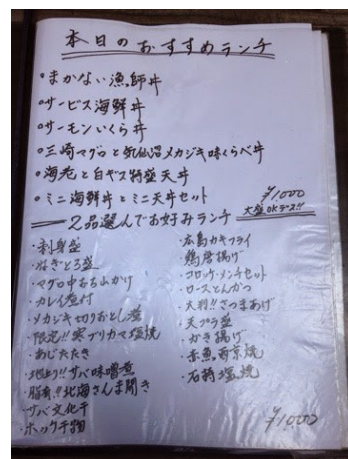 本日のおすすめランチ
・まかない漁師丼
・サービス海鮮丼
・サーモンいくら丼
・三崎マグロと気仙沼メカジキ味くらべ丼
・海老と白ギス特盛天丼
・ミニ海鮮丼とミニ天丼セット
¥1,000
大盛OKデス!!
2品選んでお好みランチ
・刺身盛
・ねぎとろ盛
・マグロ中おち山かけ
・カレイ煮付
・メカジキ切りおとし煮
・限定!!寒ブリカマ塩焼
・あじたたき
・地上り!!サバ味噌煮
・脂有!!北海さんま開き
・サバ文化干
・ホッケ干物
・広島カキフライ
・鶏唐揚げ
・コロッケ・メンチセット
・ロースとんかつ
・大判!!さつまあげ
・天プラ盛
・かき揚げ
・赤魚西京焼
・石持塩焼
¥1,000